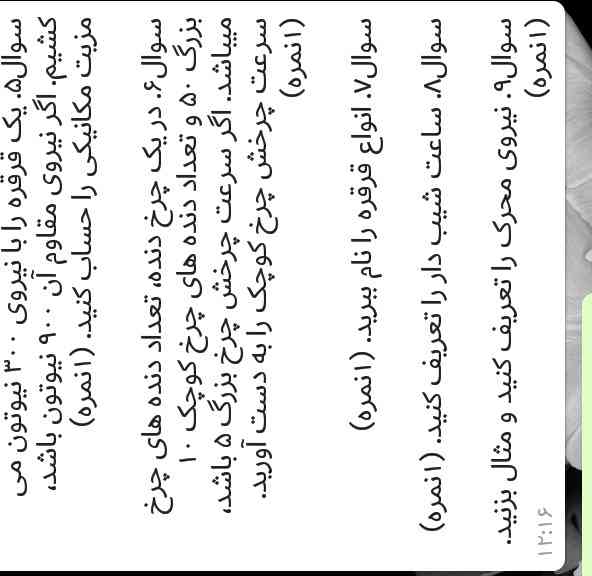 سوال۵. یک قرقره را با نیروی ۳۰۰ نیوتون می
کشیم. اگر نیروی مقاوم آن ۹۰۰ نیوتون باشد،
مزیت مکانیکی را حساب کنید. (۱نمره)
سوال۶. در یک چرخ دنده، تعداد دنده های چرخ
بزرگ ۵۰ و تعداد دنده های چرخ کوچک ۱۰
میباشد. اگر سرعت چرخش چرخ بزرگ ۵ باشد،
سرعت چرخش چرخ کوچک را به دست آورید.
(۱نمره)
سوال۷. انواع قرقره را نام ببرید. (۱نمره)
سوال۸. ساعت شیب دار را تعریف کنید. (۱نمره)
سوال۹. نیروی محرک را تعریف کنید و مثال بزنید.
(۱نمره)
۱۲:۱۶